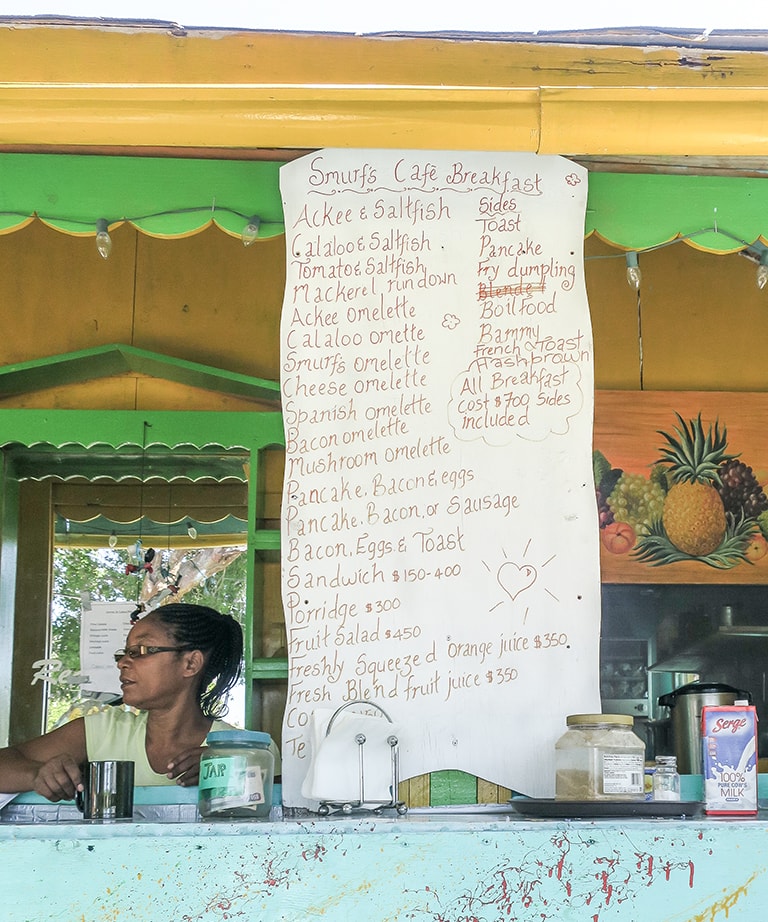 Smurf's Café Breakfast
Ackee & Saltfish
Calaloo & Saltfish
Tomato & Saltfish
Mackerel run down
Ackee omelette
Calaloo omette
Smurfs omelette
Cheese omelette
Spanish omelette
Bacon omelette
Mushroom omelette
Pancake, Bacon & eggs
Pancake, Bacon, or Sausage
Bacon, Eggs & Toast
Sandwich $150-400
Porridge $300
Fruit Salad $450
Freshly Squeezed Orange juice $350
Fresh Blend fruit juice $350
Co
Te
Sides
Toast
Pancake
Fry dumpling
Boil food
Bammy
French Toast
Hashbrown
All Breakfast
cost $700 Sides
included
JAP
Serge
100%
PURE COW'S
MILK